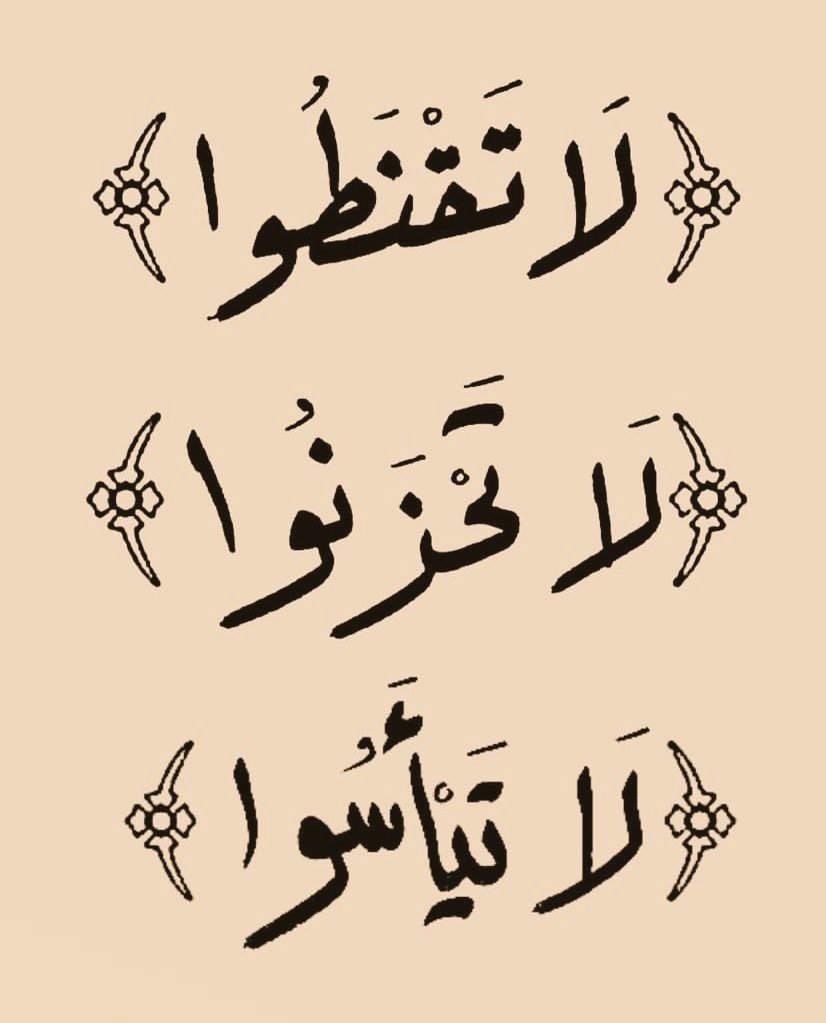 لَا تَقْنَطُوا
لَا تَحْزَنُوا
لَا تَيْأَسُوا